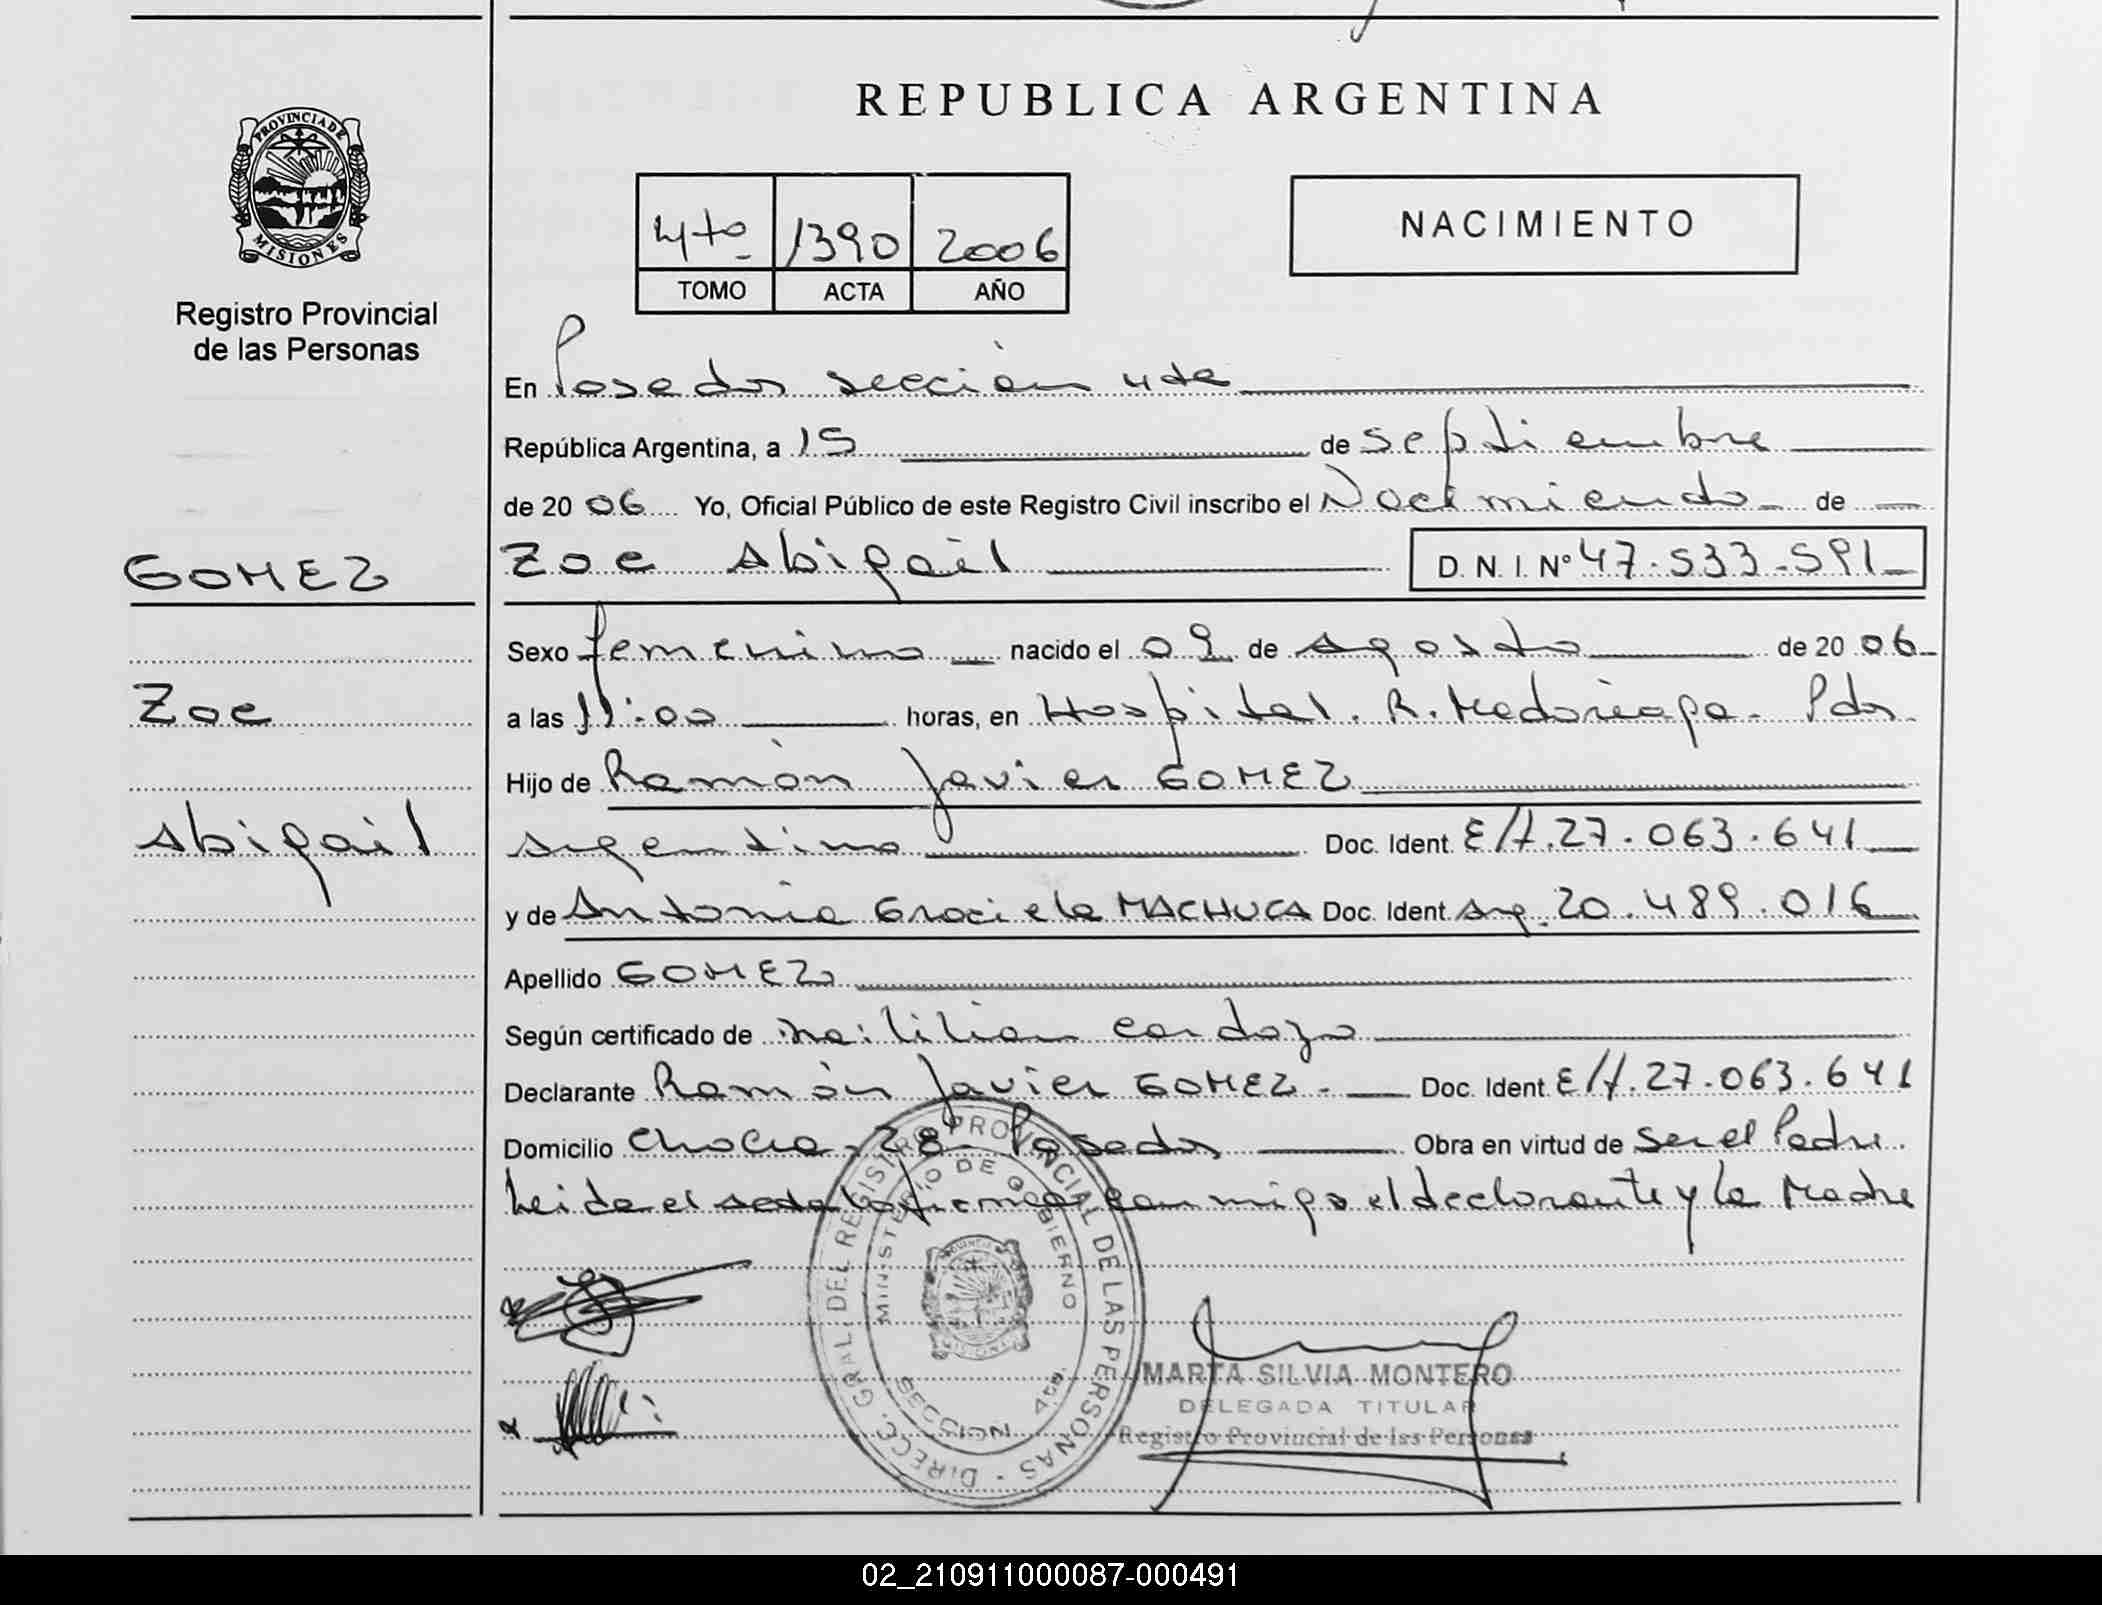 PROVINCIA DE
MISIONES
Registro Provincial
de las Personas
GOMEZ
Zoe
Abigail
REPUBLICA ARGENTINA
4to 1390 2006
TOMO ACTA AÑO
NACIMIENTO
En Posadas sección 4ta
República Argentina, a 15 de septiembre
de 2006 Yo, Oficial Público de este Registro Civil inscribo el Nacimiento de
Zoe Abigail D. N. I. Nº 47.533.591
Sexo femenino nacido el 09 de Agosto de 2006
a las 11:00 horas, en Hospital. R. Madariaga. Pdas
Hijo de Ramón Javier GOMEZ
Argentino Doc. Ident. 27.063.641
y de Antonia Graciela MACHUCA Doc. Ident. Arg. 20.489.016
Apellido GOMEZ
Según certificado de Lilian Cardozo
Declarante Ramón Javier GOMEZ Doc. Ident. 27.063.641
Domicilio Chacra 28 Posadas Obra en virtud de ser el Padre
Leida el acta la firman conmigo el declarante y la Madre
DIRECC. GRAL. DEL REGISTRO PROVINCIAL DE LAS PERSONAS
MINISTERIO DE GOBIERNO
SECCION 4ta.
MARTA SILVIA MONTERO
DELEGADA TITULAR
Registro Provincial de las Personas
02_210911000087-000491